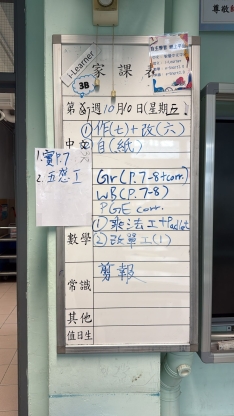 i-Learner
3B
家課表
第 週 10月10日(星期五)
中文 ①作(七)+改(六)
②自(紙)
1.實P.7
2.五想工
Gr(P.7-8+corr.)
WB(P.7-8)
PGE corr.
數學 ①乘法工+Padlet
②改單工(1)
常識 剪報
其他
值日生